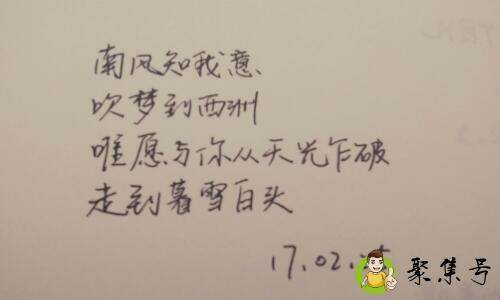 南风知我意
吹梦到西洲
唯愿与你从天光乍破
走到暮雪白头
17.02.
聚集号